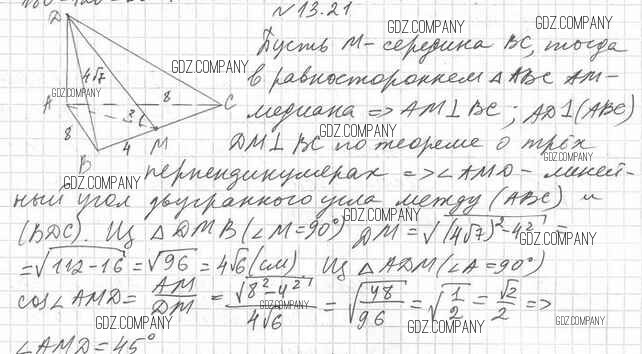 N 13.21
D
4√7
8
A
C
3
8
4
M
B
Пусть M - середина BC, тогда
в равностороннем △ABC AM -
медиана => AM⊥BC; AD⊥(ABC)
DM⊥BC по теореме о трёх
перпендикулярах => ∠AMD - линей-
ный угол двугранного угла между (ABC) и
(BDC). Из △DMB (∠M=90°) DM = √((4√7)²-4²) =
= √(112-16) = √96 = 4√6 (см) Из △ADM (∠A=90°)
cos∠AMD = AM/DM = √(8²-4²)/4√6 = √(48/96) = √(1/2) = √2/2 =>
∠AMD = 45°
GDZ.COMPANY
GDZ.COMPANY
GDZ.COMPANY
GDZ.COMPANY
GDZ.COMPANY
GDZ.COMPANY
GDZ.COMPANY
GDZ.COMPANY
GDZ.COMPANY
GDZ.COMPANY
GDZ.COMPANY
GDZ.COMPANY
GDZ.COMPANY
GDZ.COMPANY